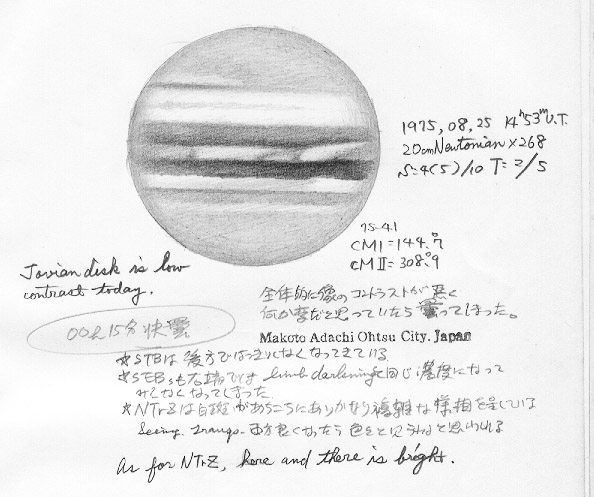 1975, 08, 25 14h53m U.T.
20cm Newtonian × 268
S=4(5)/10 T=2/5
75-41
CMI=144.°7
CMII=308.°9
Jovian disk is low
contrast today.
全体的に像のコントラストが悪く
何か変だと思っていたら曇ってしまった。
00h15分 快曇
Makoto Adachi Ohtsu City. Japan
☆STBは後方ではっきりしなくなってきている
☆SEBsも右端では limb darkeningと同じ濃度になって
みえなくなってしまった
☆NTrZは白斑があちこちにあり かなり複雑な様相を呈している
Seeing,
As for NTrZ, here and there is bright.